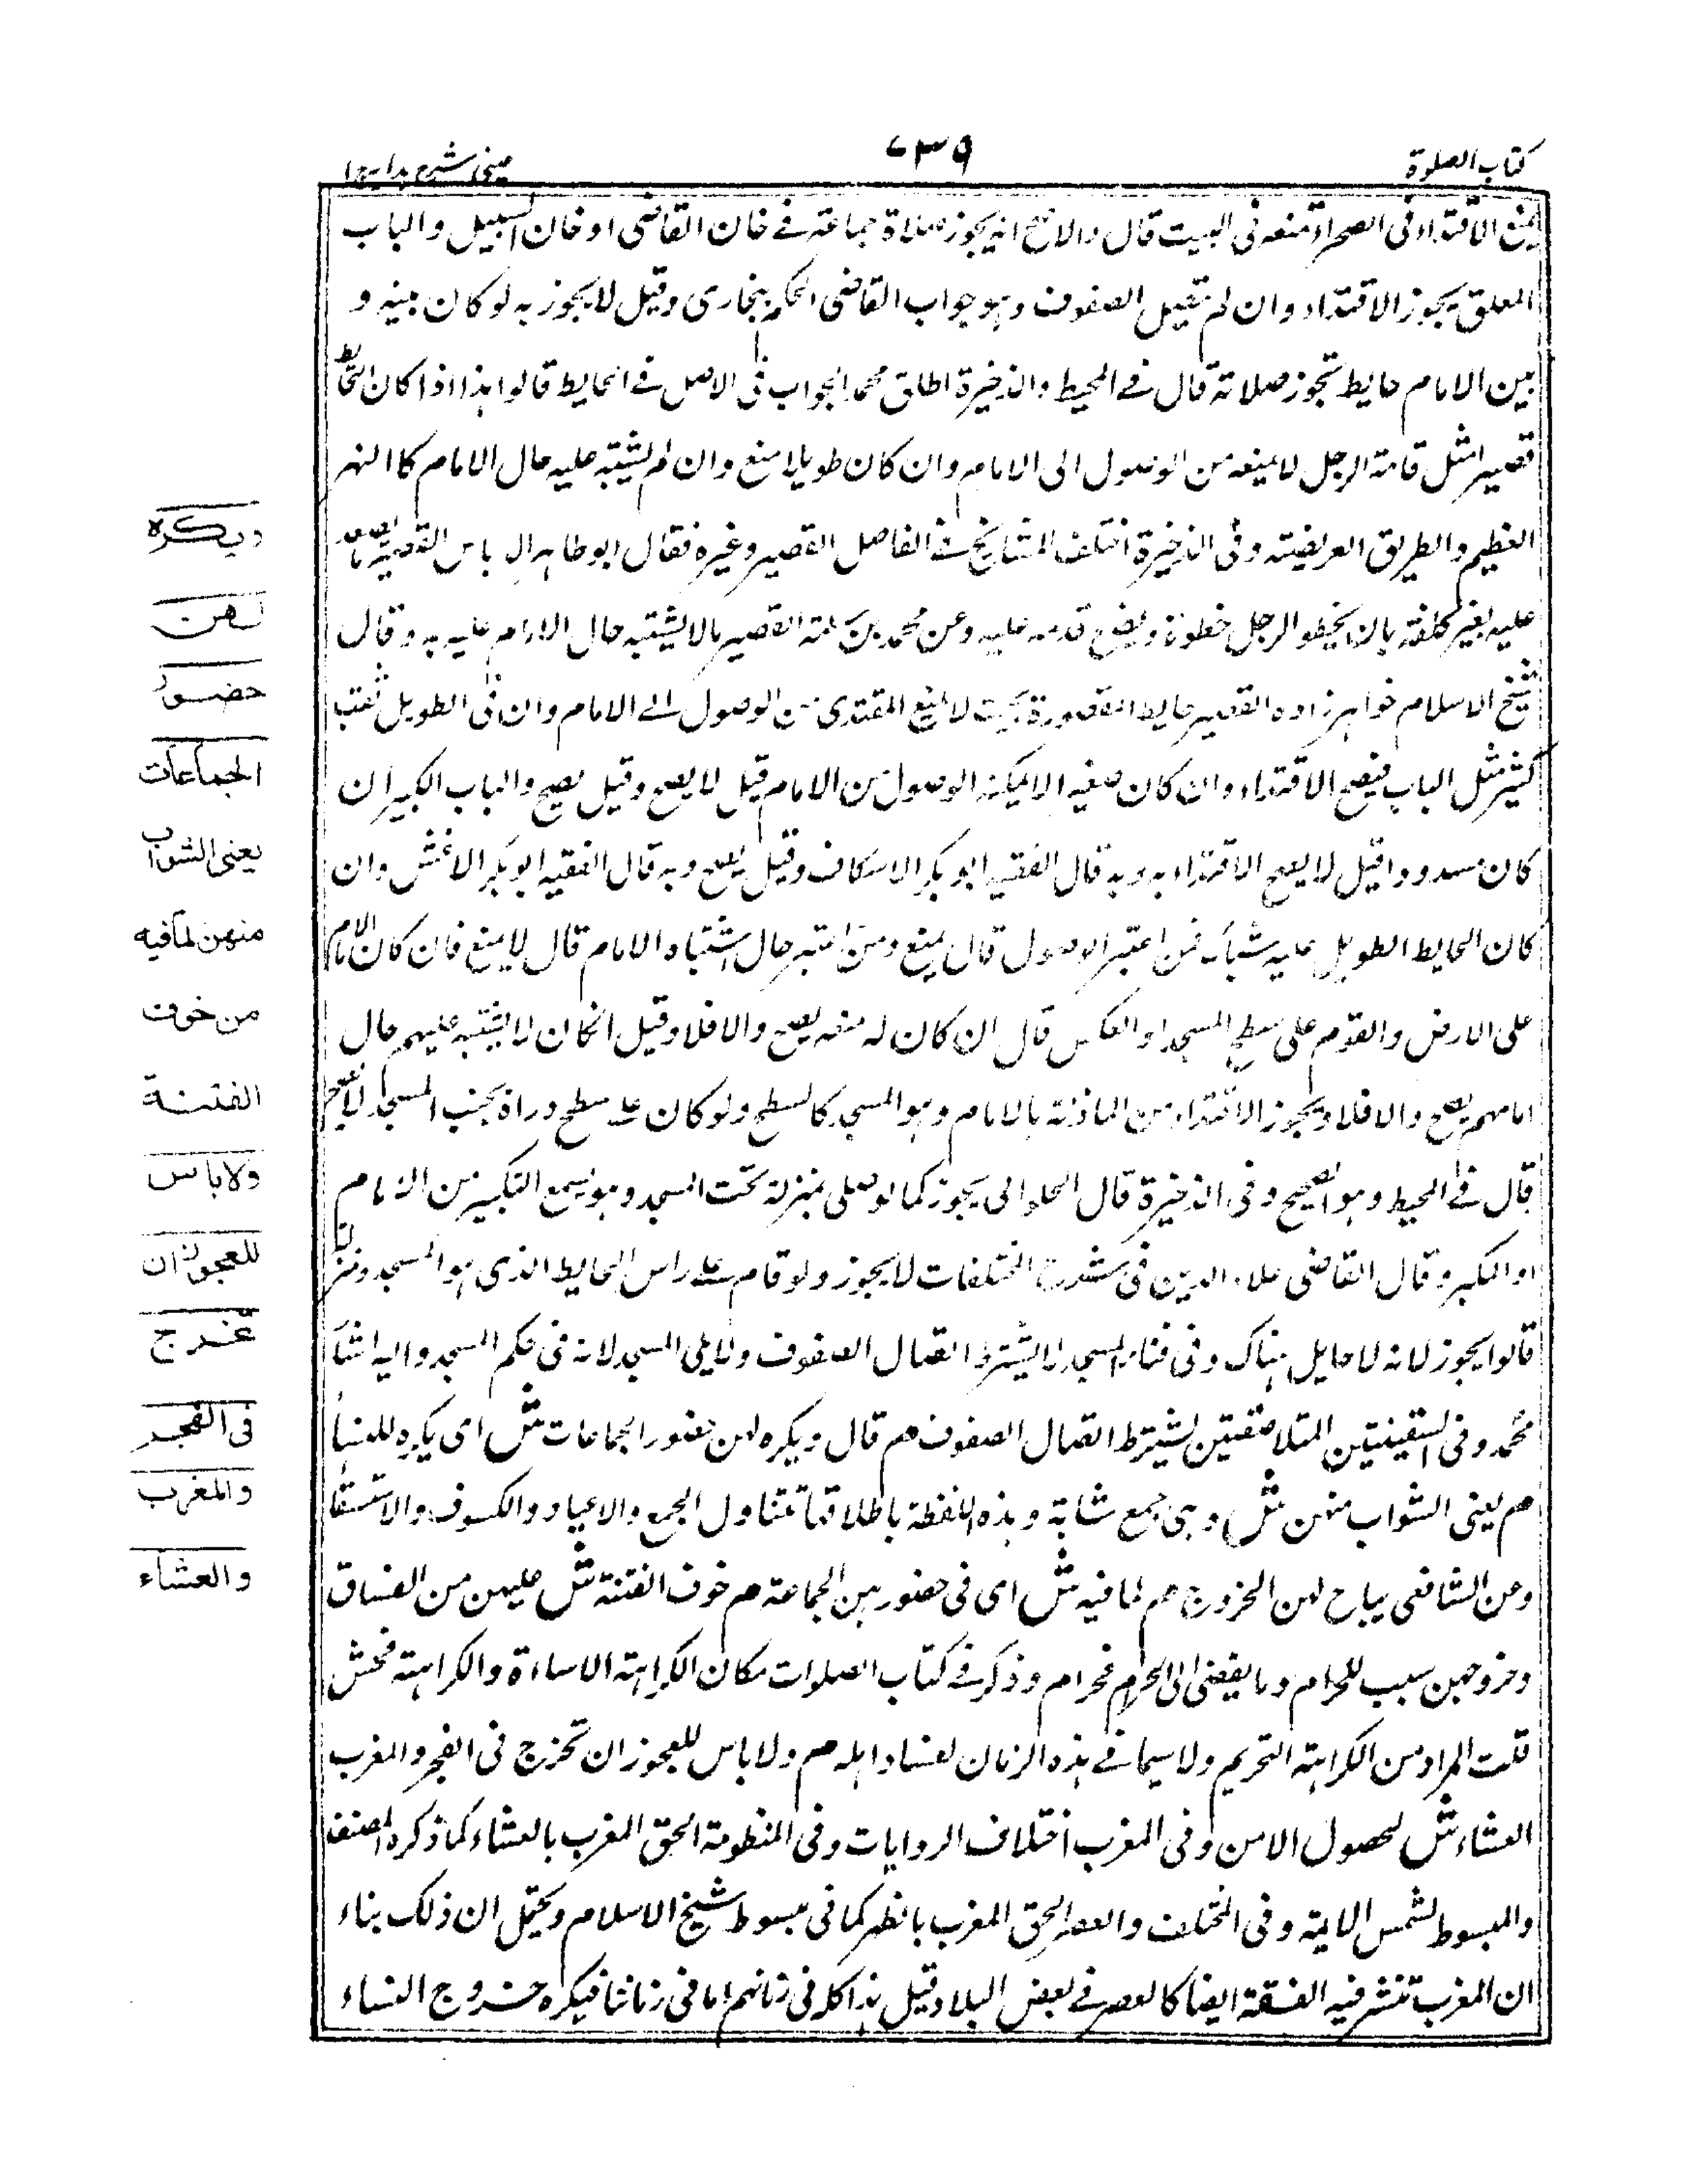 كتاب الصلوة
٧٣٩
عينى شرح هدايه ج ١
يمنع الاقتداء فى الصحراء تمنعه فى البيت قال والاصح انه يجوز صلاة جماعة فى خان القاضى او خان السبيل والباب
المغلق يجوز الاقتداء وان لم تتصل الصفوف وهو جواب القاضى الحكم ببخارى وقيل لا يجوز به لو كان بينه و
بين الامام حايط تجوز صلاته قال فى المحيط والذخيرة اطلق محمد الجواب فى الاصل فى الحايط قالوا هذا اذا كان الحايط
قصيرا مثل قامة الرجل لا يمنعه من الوصول الى الامام وان كان طويلا منع وان لم يشتبه عليه حال الامام كالنهر
العظيم والطريق العريضة وفى الذخيرة اختلف المشايخ فى الفاصل القصير وغيره فقال ابو طاهر الدباس القصير ما يصعد
عليه بغير كلفة بان يخطو الرجل خطوة ويضع قدمه عليه وعن محمد بن سلمة القصير ما لا يشتبه حال الامام عليه به وقال
شيخ الاسلام خواهرزاده القصير حايط المقصورة بحيث لا يمنع المقتدى من الوصول الى الامام وان فى الطويل ثقب
كثير مثل الباب فيصح الاقتداء وان كان صغيرا لا يمكنه الوصول من الامام قيل لا يصح وقيل يصح والباب الكبير ان
كان مسدودا قيل لا يصح الاقتداء به وبه قال الفقيه ابو بكر الاسكاف وقيل يصح وبه قال الفقيه ابو بكر الاعمش وان
كان الحايط الطويل عليه شباك فمن اعتبر الوصول قال يمنع ومن اعتبر حال اشتباه الامام قال لا يمنع فان كان الامام
على الارض والقوم على سطح المسجد او العكس قال ان كان له منفذ يصح والا فلا وقيل ان كان لا يشتبه عليهم حال
امامهم يصح والا فلا ويجوز الاقتداء من الماذنة بالامام وهو المسجد كالسطح ولو كان على سطح دراة بجنب المسجد لا يصح
قال فى المحيط وهو الصحيح وفى الذخيرة قال الحلوانى يجوز كما لو صلى بمنزله تحت المسجد وهو يسمع التكبير من الامام
او المكبر وقال القاضى علاء الدين فى شرح المختلفات لا يجوز ولو قام على راس الحايط الذى هو المسجد ومنزله
قالوا يجوز لانه لا حايل هناك وفى فناء المسجد لا يشترط اتصال الصفوف ولا يلى المسجد لانه فى حكم المسجد واليه اشار
محمد وفى السفينتين المتلاصقتين يشترط اتصال الصفوف هم قال ويكره لهن حضور الجماعات ش اى يكره للنساء
هم يعنى الشواب منهن ش وهى جمع شابة وهذه اللفظة باطلاقها تتناول الجمع والاعياد والكسوف والاستسقاء
وعن الشافعى يباح لهن الخروج هم لما فيه ش اى فى حضورهن الجماعة هم خوف الفتنة ش عليهن من الفساق
وخروجهن سبب للحرام وما يفضى الى الحرام فحرام وذكر فى كتاب الصلوات مكان الكراهة الاساءة والكراهة فحش
قلت المراد من الكراهة التحريم ولا سيما فى هذه الزمان لفساد اهله هم ولا باس للعجوز ان تخرج فى الفجر والمغرب
العشاء ش لحصول الامن وفى المغرب اختلاف الروايات وفى المنظومة الحق المغرب بالعشاء كما ذكره المصنف
والمبسوط لشمس الايمة وفى المختلف والعصر الحق المغرب بالظهر كما فى مبسوط شيخ الاسلام ويحتمل ان ذلك بناء
ان المغرب تنتشر فيه الفسقة ايضا كالعصر فى بعض البلاد وقيل هذا كله فى زمانهم اما فى زماننا فيكره خروج النساء
ويكره
لهن
حضور
الجماعات
يعنى الشواب
منهن لما فيه
من خوف
الفتنة
ولا باس
للعجوز ان
تخرج
فى الفجر
والمغرب
والعشاء